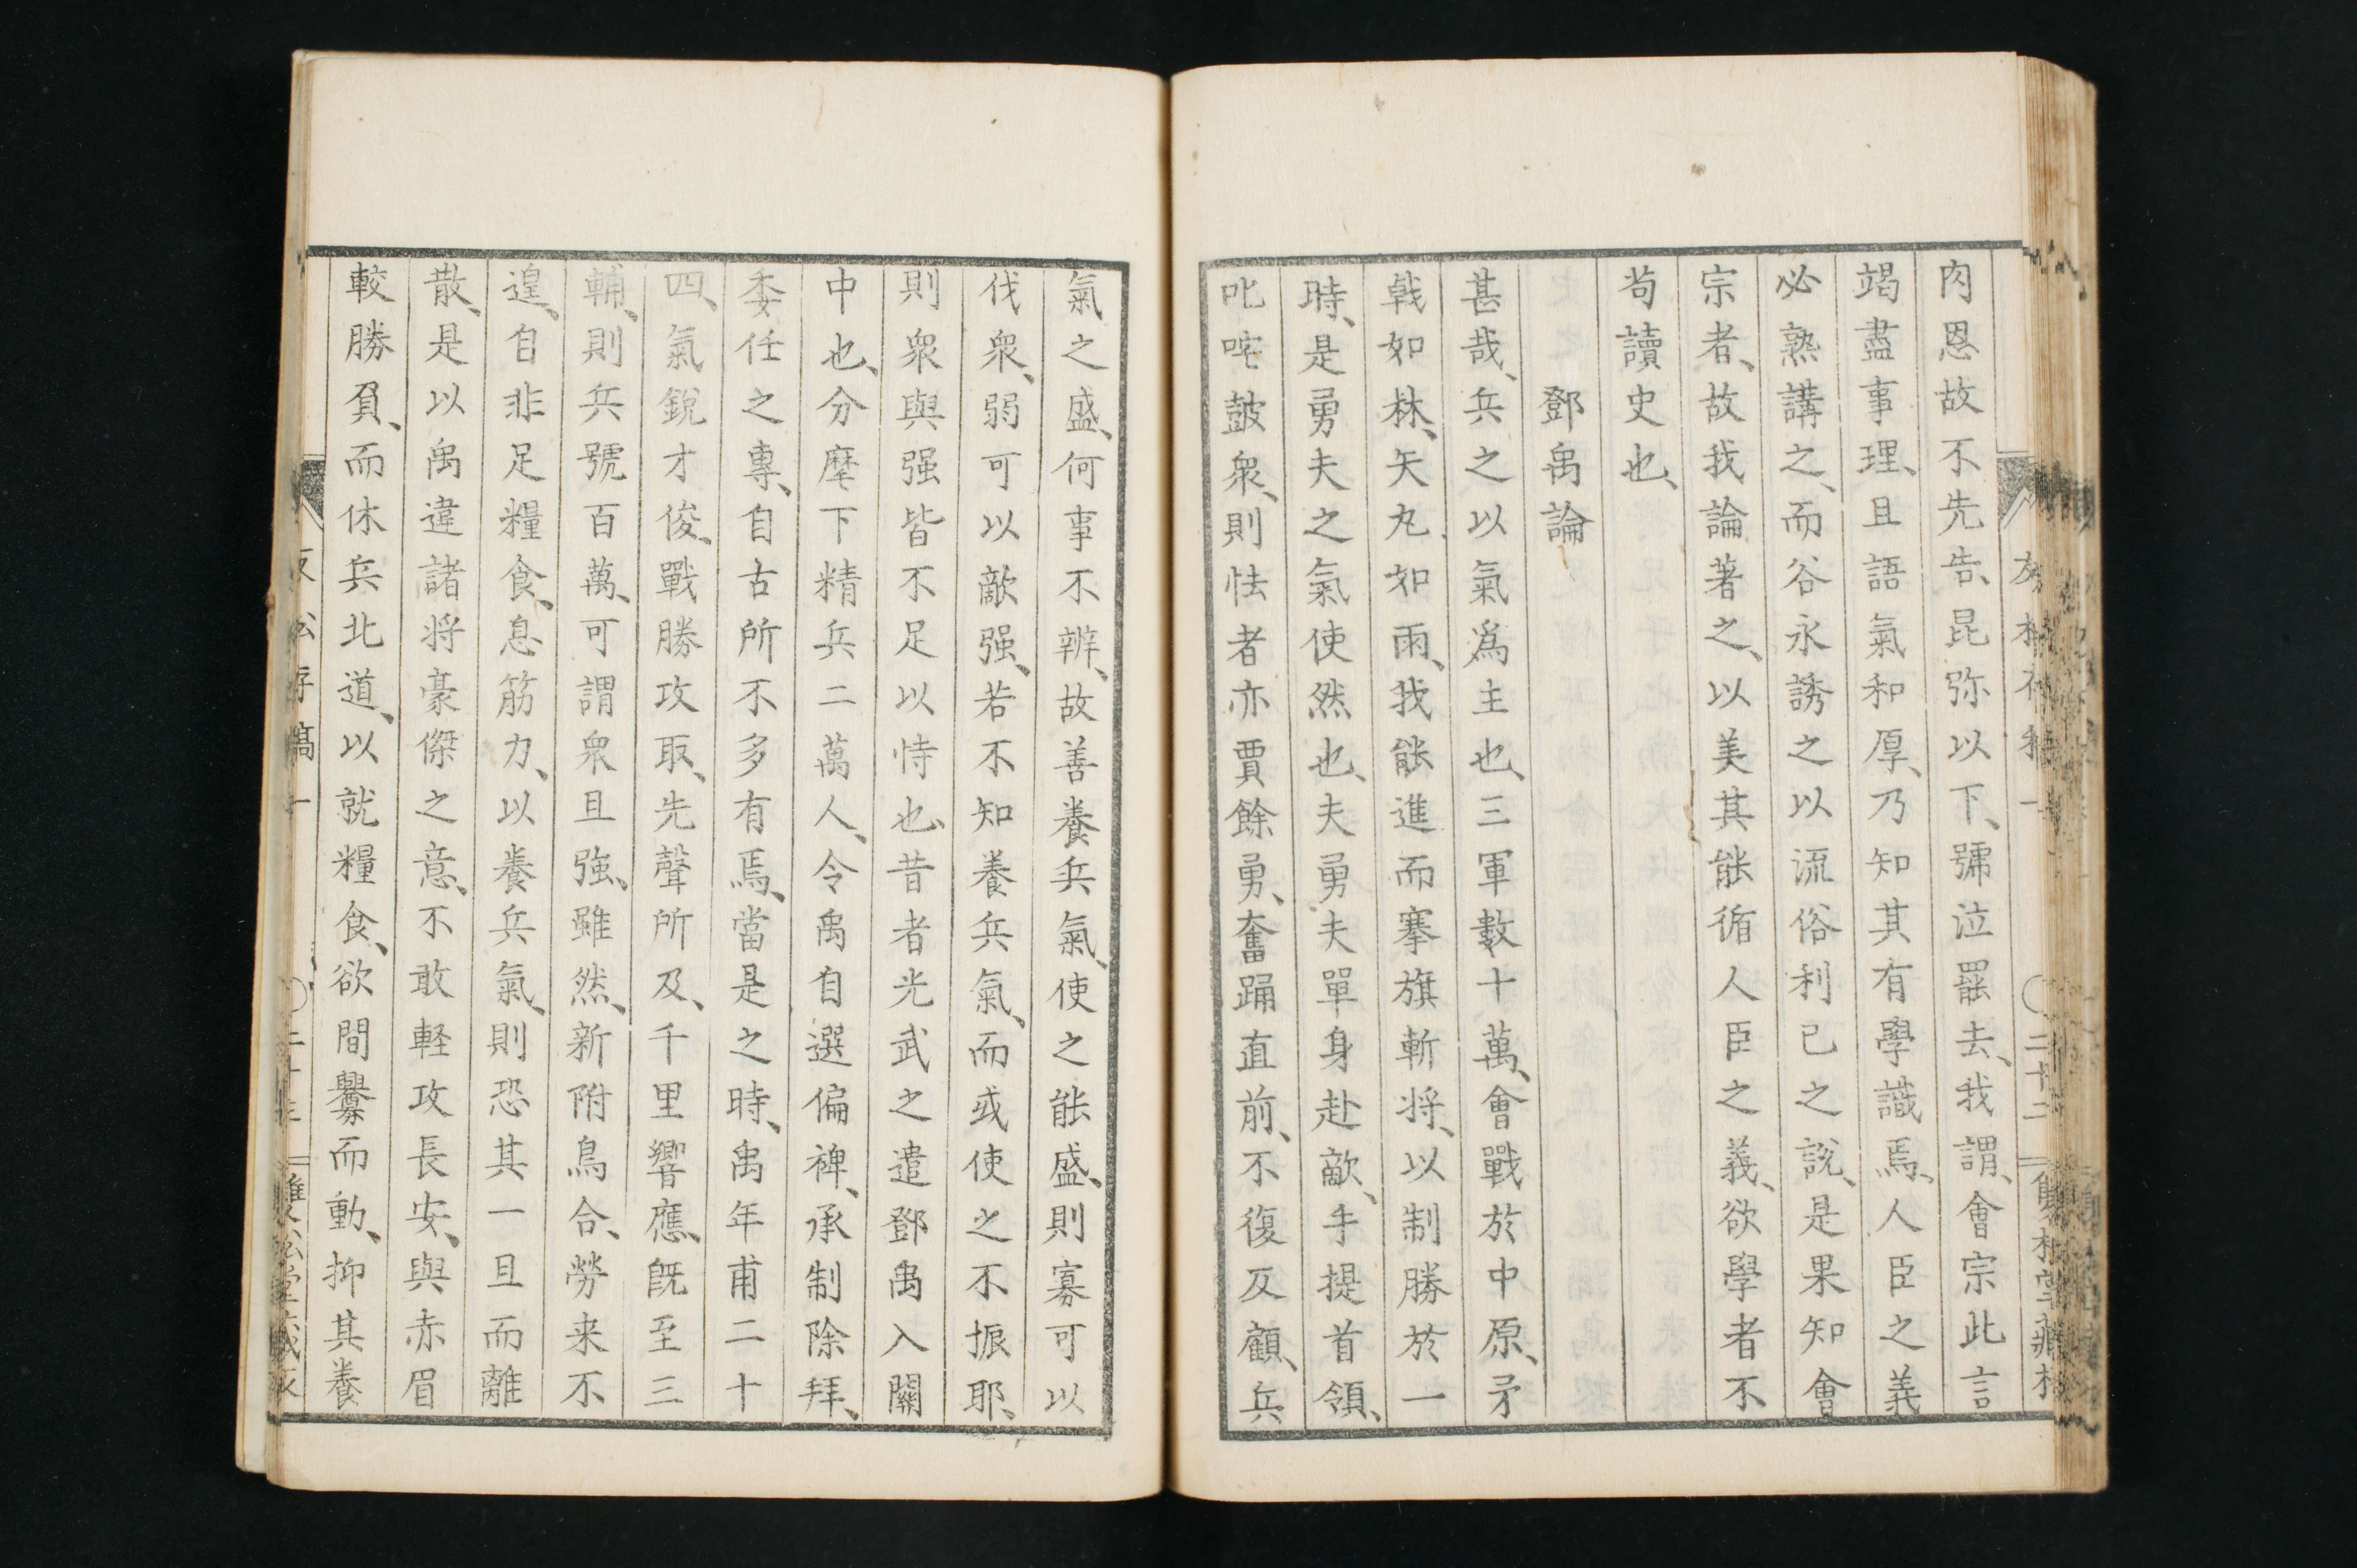 肉恩故不先告、昆弥以下、號泣罷去、我謂、會宗此言
竭盡事理、且語氣和厚、乃知其有學識焉、人臣之義
必熟講之、而谷永誘之以流俗利己之說、是果知會
宗者、故我論著之、以美其能循人臣之義、欲學者不
苟讀史也、
鄧禹論
甚哉、兵之以氣爲主也、三軍數十萬、會戰於中原、矛
戟如林、矢丸如雨、我能進而搴旗斬将、以制勝於一
時、是勇夫之氣使然也、夫勇夫單身赴敵、手提首領、
叱咤鼓衆、則怯者亦賈餘勇、奮踊直前、不復反顧、兵
氣之盛、何事不辨、故善養兵氣、使之能盛、則寡可以
伐衆、弱可以敵强、若不知養兵氣、而或使之不振耶、
則衆與强皆不足以恃也、昔者光武之遣鄧禹入關
中也、分麾下精兵二萬人、令禹自選偏裨、承制除拜、
委任之專、自古所不多有焉、當是之時、禹年甫二十
四、氣銳才俊、戰勝攻取、先聲所及、千里響應、既至三
輔、則兵號百萬、可謂衆且強、雖然、新附鳥合、勞来不
遑、自非足糧食、息筋力、以養兵氣、則恐其一旦而離
散、是以禹違諸将豪傑之意、不敢軽攻長安、與赤眉
較勝負、而休兵北道、以就糧食、欲間釁而動、抑其養